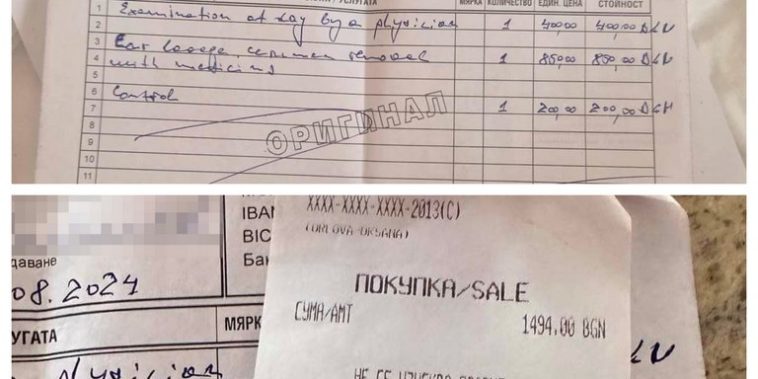 УСЛУГАТА МЯРКА КОЛИЧЕСТВО ЕДИН. ЦЕНА СТОЙНОСТ
1 Examination at day by a physician 1 400,00 400,00
2
3 Ear cerumen removal 1 850,00 850,00
4 with medicine
5
6 Control
7 1 200,00 200,00
8 ОРИГИНАЛ
9
10
11
XXXX-XXXX-XXXX-2013(C)
IBAN
(ORLOVA OKSANA)
BIC
даване
Ба
ПОКУПКА/SALE
08.2024
СУМА/AMT
1494.00 BGN
УГАТА МЯРК
physician